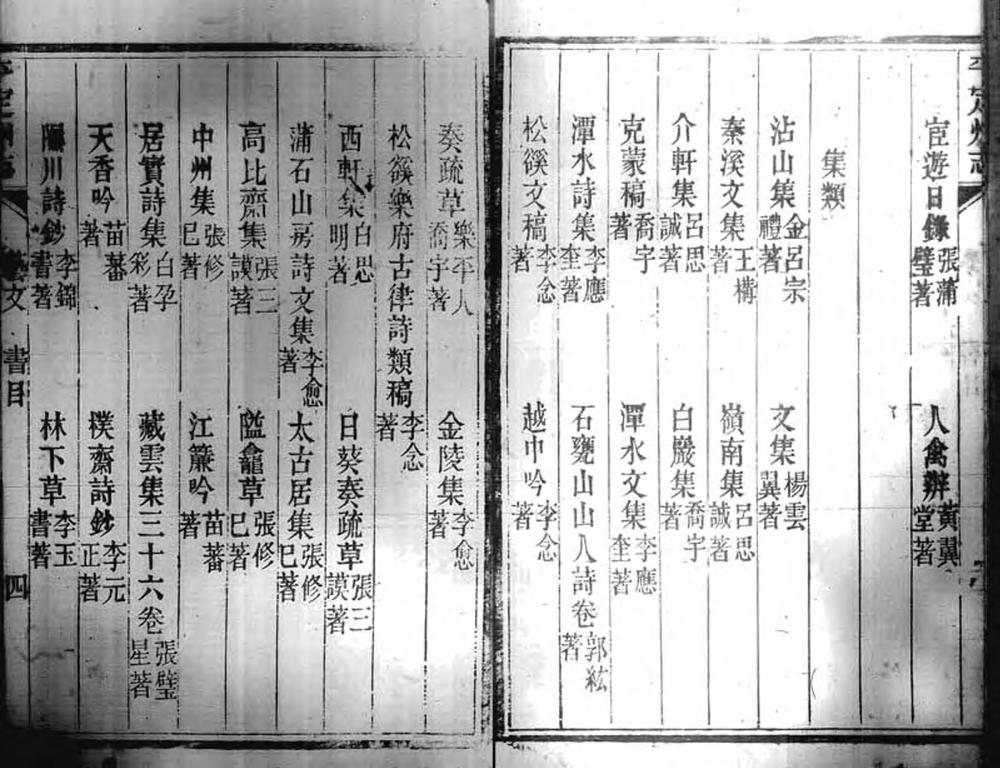 平定州志
宦遊日錄張蒲璧著 人禽辨黃翼堂著
集類
沾山集金呂宗禮著 文集楊雲翼著
秦溪文集王構著 嶺南集呂思誠著
介軒集呂思誠著 白巖集喬宇著
克蒙稿喬宇著 潭水文集李應奎著
潭水詩集李應奎著 石甕山山人詩卷郭紘著
松溪文稿李念著 越中吟李念著
奏疏草樂平人喬宇著 金陵集李愈著
松谿樂府古律詩類稿李念著
西軒集白思明著 日葵奏疏草張三謨著
蒲石山房詩文集李愈著 太古居集張修巳著
高比齋集張三謨著 隘龕草張修巳著
中州集張修巳著 江簾吟苗蕃著
居實詩集白孕彩著 藏雲集三十六卷張璧星著
天香吟苗蕃著 樸齋詩鈔李元正著
川詩鈔李錦書著 林下草李玉書著
平定州志 藝文 書目 四